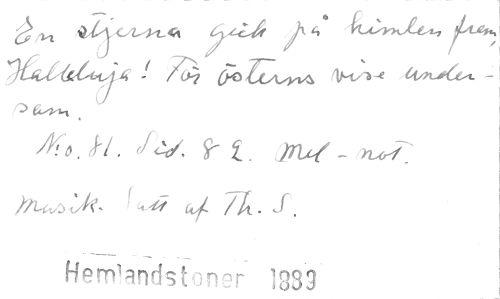 En stjerna gick på himlen fram,
Halleluja! För österns vise under-
sam.
No. 81. Sid. 82. Mel-not.
Musik. satt af Th. S.
Hemlandstoner 1889